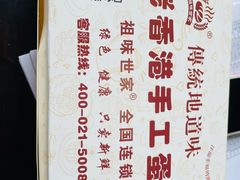 傳統地道味
香港手工蛋
祖味世家 全国连锁
绿色 健康 只卖新鲜
客服热线：400-021-5008